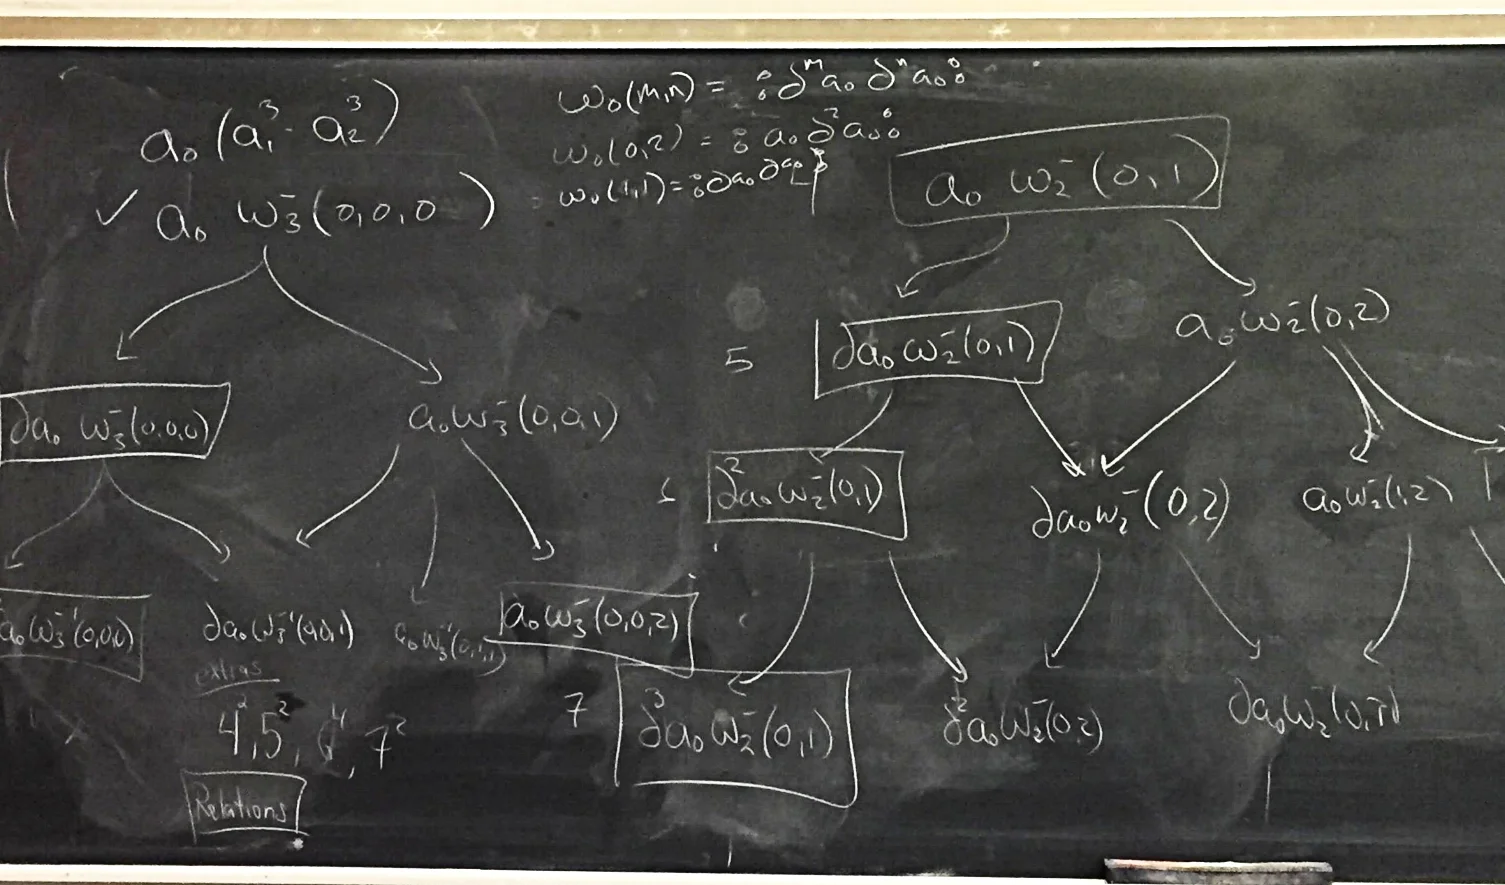 a₀(a₁³ - a₂³)
✓ a₀ ω₃⁻(0,0,0)
ω₀(m,n) = ⦂∂ᵐa₀ ∂ⁿa₀⦂
ω₀(0,2) = ⦂a₀ ∂²a₀⦂
ω₀(1,1) = ⦂∂a₀ ∂a₀⦂
a₀ ω₂⁻(0,1)
5 ∂a₀ω₂⁻(0,1)
a₀ω₂⁻(0,2)
∂a₀ ω₃⁻(0,0,0)
a₀ω₃⁻(0,0,1)
∂²a₀ω₂⁻(0,1)
∂a₀ω₂⁻(0,2)
a₀ω₂⁻(1,2)
a₀ω₃⁻(0,0,0)
∂a₀ω₃⁻(0,0,1)
a₀ω₃⁻(0,1,1)
a₀ω₃⁻(0,0,2)
extras
4², 5², 6⁴, 7²
Relations
7 ∂³a₀ω₂⁻(0,1)
∂²a₀ω₂⁻(0,2)